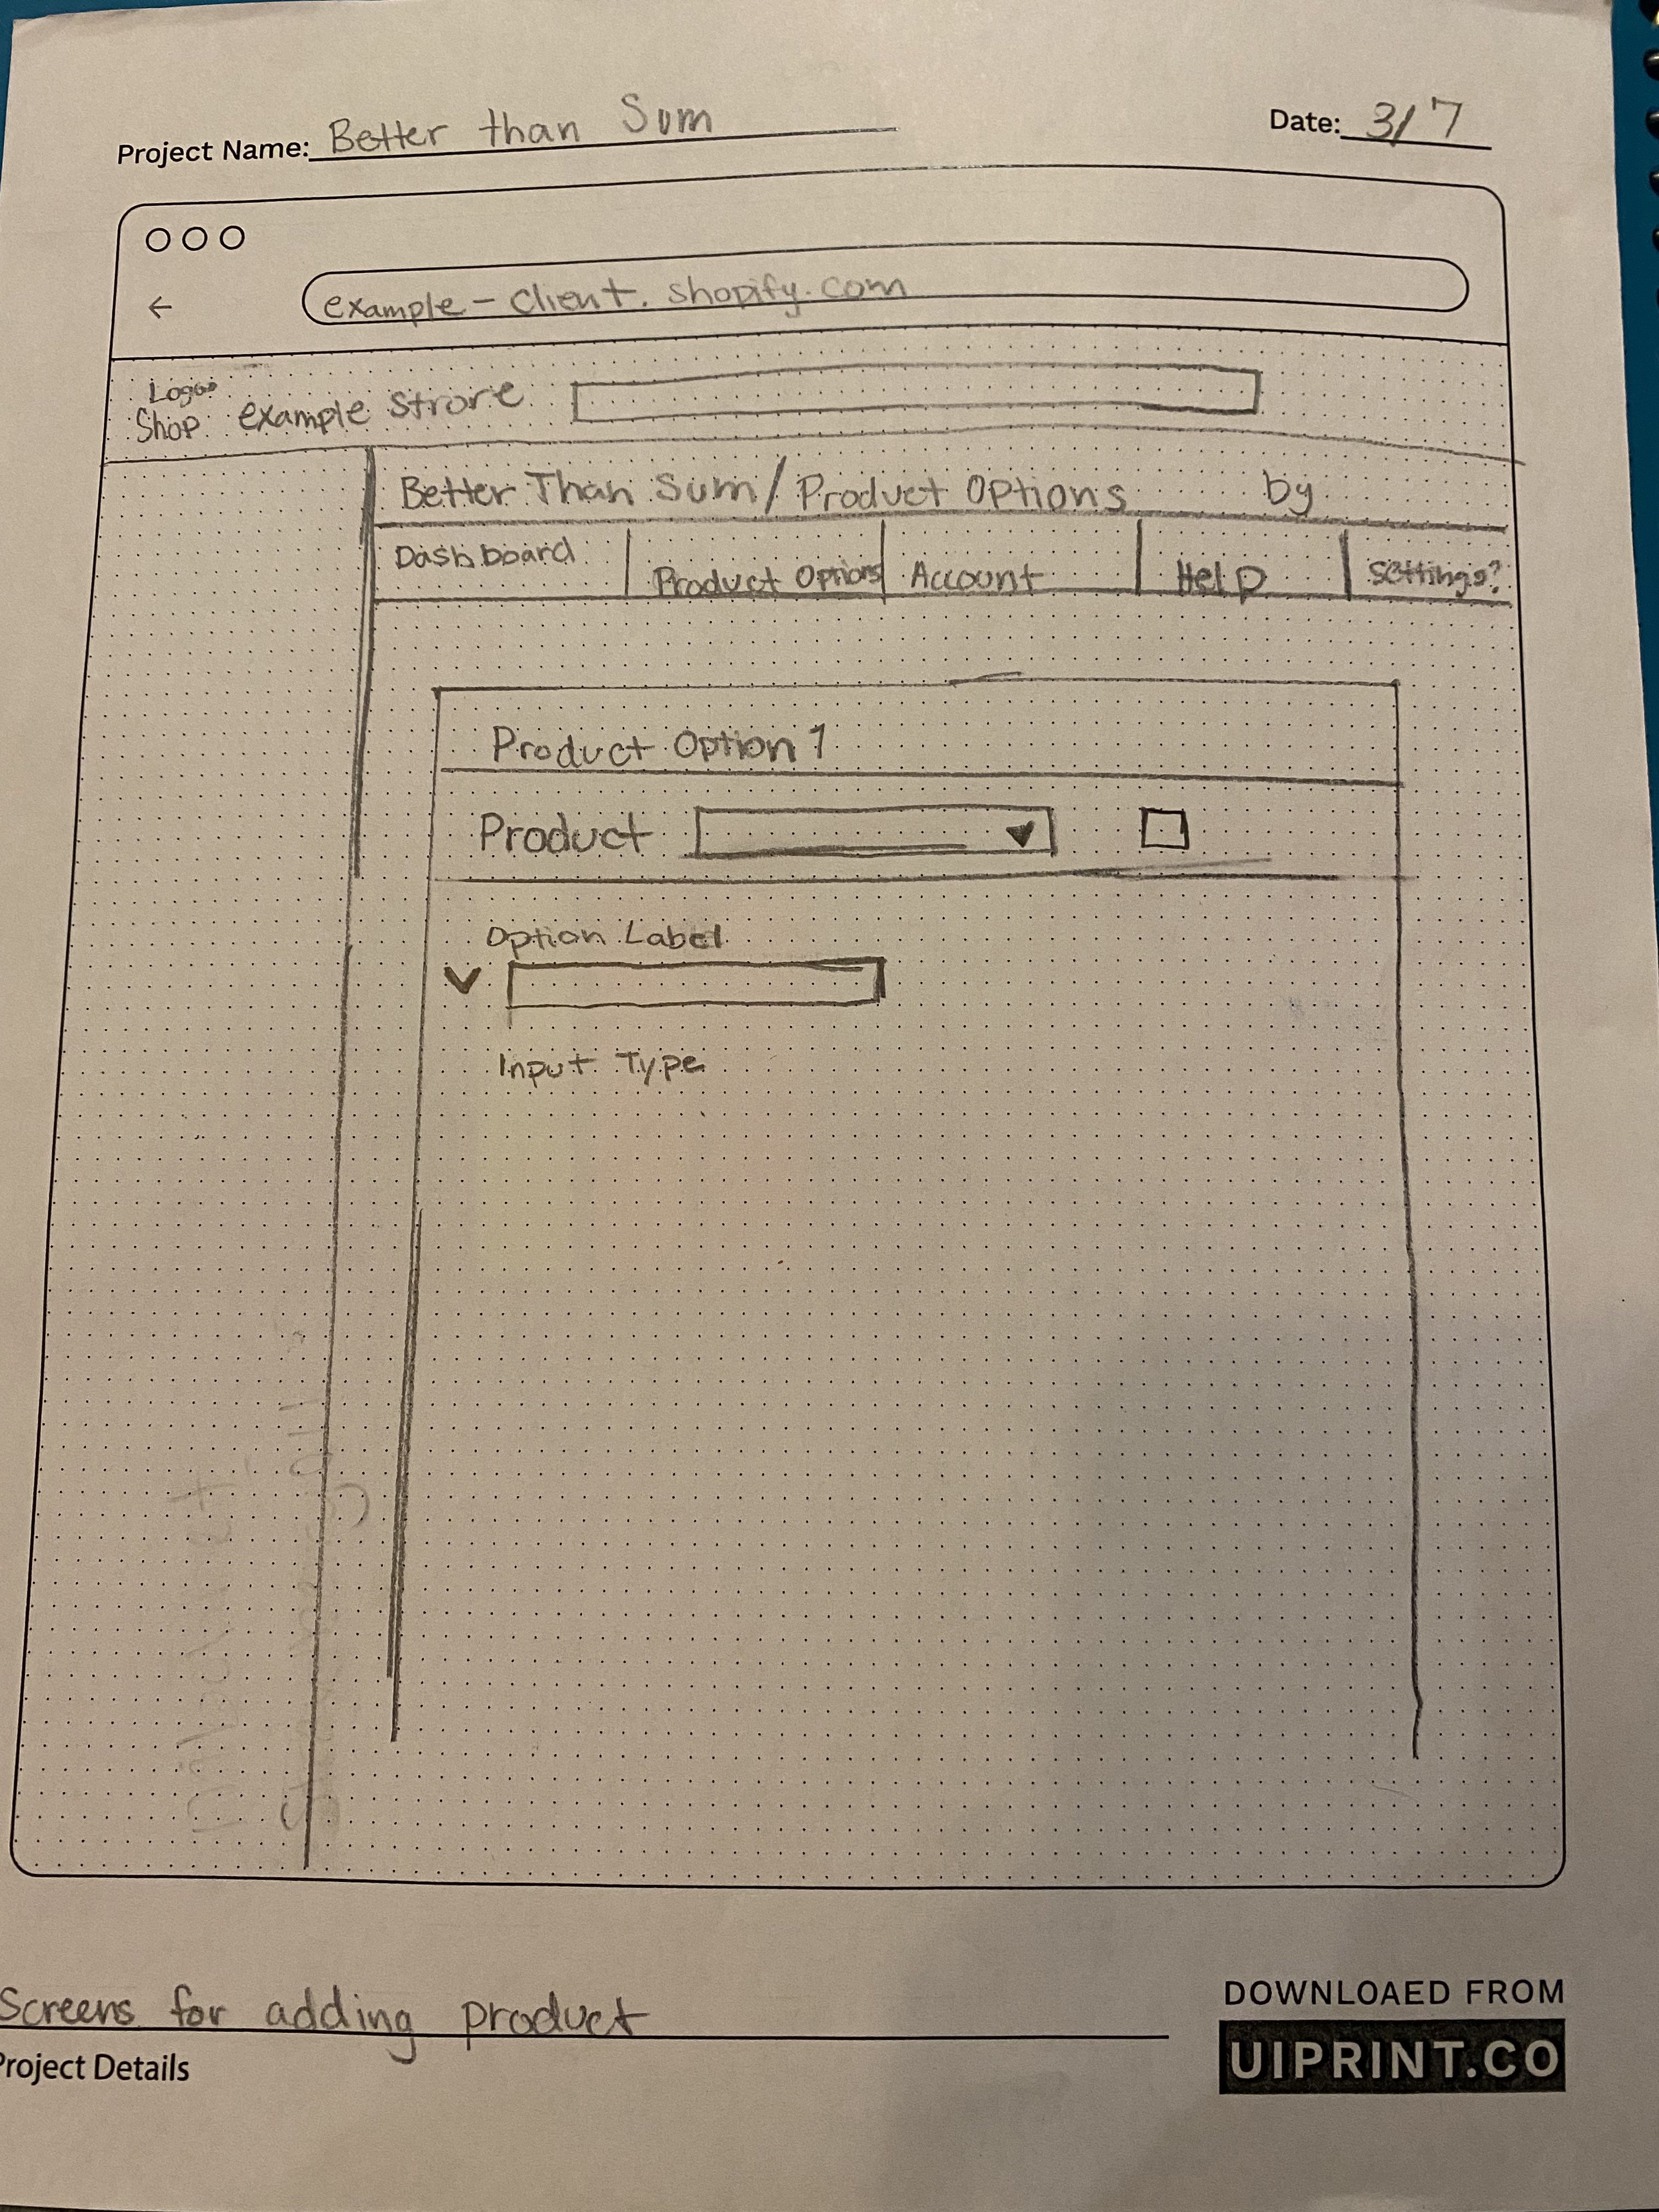 Project Name: Better than Sum
Date: 3/7
example-client.shopify.com
Logo
Shop example Strore
Better Than Sum/Product Options by
Dashboard Product Options Account Help Settings?
Product Option 1
Product
Option Label
Input Type
Screens for adding product
Project Details
DOWNLOAED FROM
UIPRINT.CO